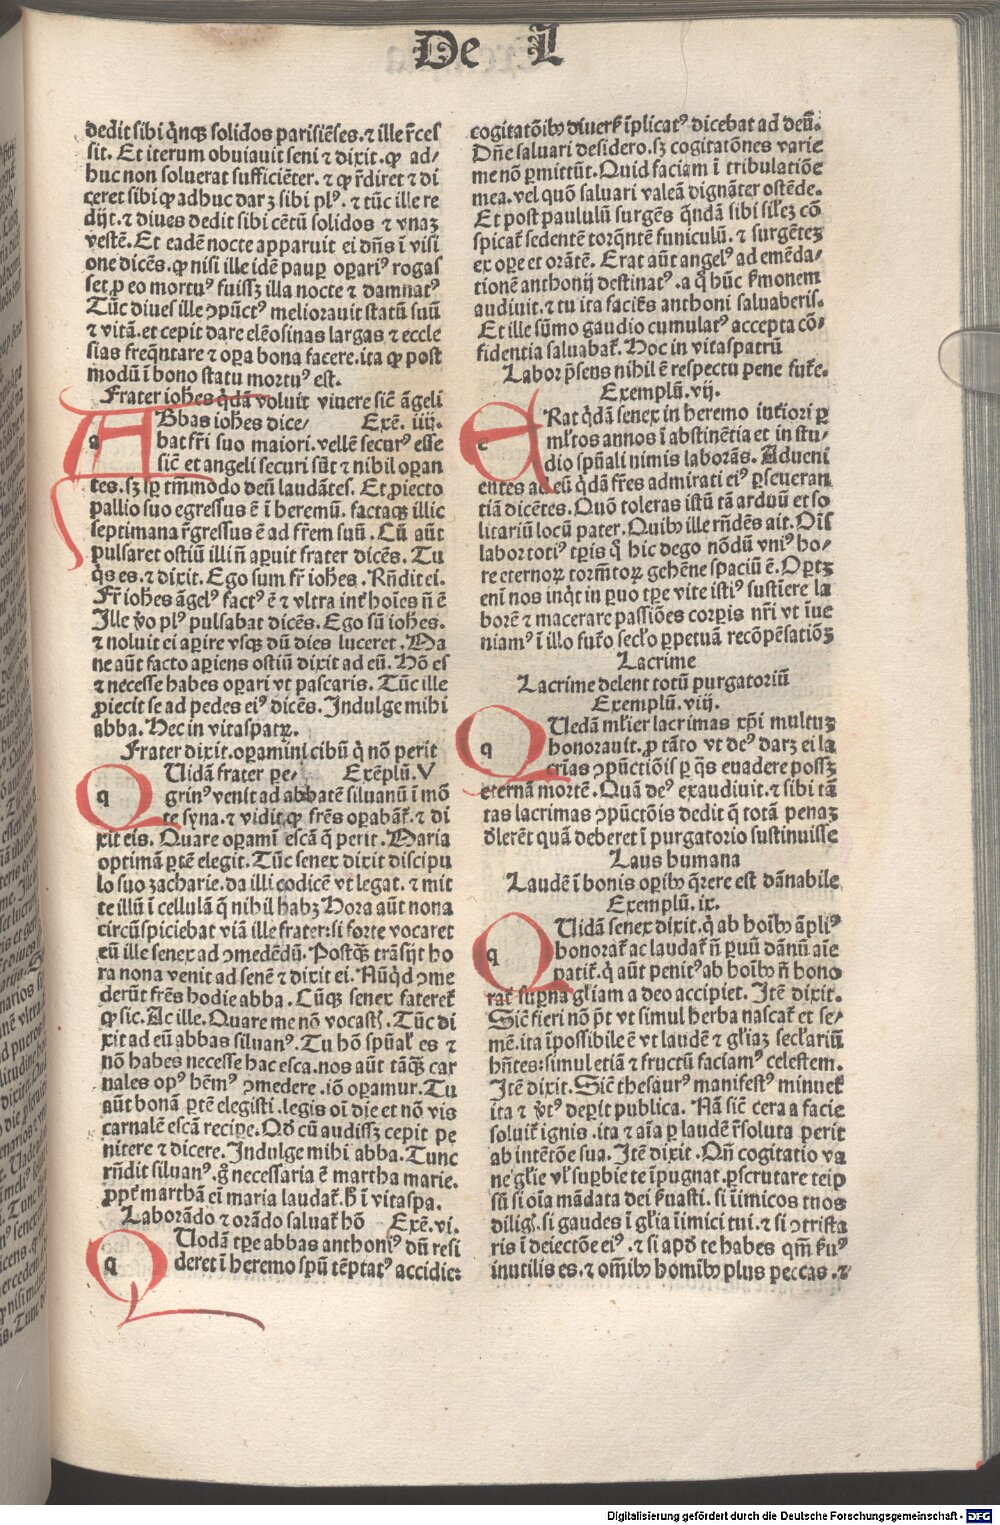 De L
dedit sibi q̃nqꝫ solidos parisiẽses.⁊ ille r̃ces
sit. Et iterum obuiauit seni ⁊ dixit. ꝙ ad⸗
huc non soluerat sufficiẽter. ⁊ ꝙ r̃diret ⁊ di
ceret sibi ꝙ adhuc darꝫ sibi plꝰ. ⁊ tũc ille re
dijt. ⁊ diues dedit sibi cẽtũ solidos ⁊ vnaꝫ
vestẽ. Et eadẽ nocte apparuit ei dñs ĩ visi
one dicẽs. ꝙ nisi ille idẽ pauꝑ oꝑariꝰ rogas
set ꝓ eo mortuꝰ fuissꝫ illa nocte ⁊ damnatꝰ
Tũc diues ille ꝯpũctꝰ meliorauit statũ suũ
⁊ vitã. et cepit dare elẽosinas largas ⁊ eccle
sias freq̃ntare ⁊ oꝑa bona facere. ita ꝙ post
modũ ĩ bono statu mortuꝰ est.
Frater ioh̃es q̃dã voluit viuere sic̃ ãgeli
ABbas ioh̃es dice⸗ Exẽ. iiij.
bat fr̃i suo maiori. vellẽ securꝰ esse
sic̃ et angeli securi sũt ⁊ nihil oꝑan
tes. sꝫ sꝑ tm̃modo deũ laudãtes. Et ꝓiecto
pallio suo egressus ẽ ĩ heremũ. factaqꝫ illic
septimana r̃gressus ẽ ad fr̃em suũ. Cũ aũt
pulsaret ostiũ illi ñ aꝑuit frater dicẽs. Tu
q̃s es. ⁊ dixit. Ego sum fr̃ ioh̃es. Rñdit ei.
Fr̃ ioh̃es ãgelꝰ factꝰ ẽ ⁊ vltra int̃ hoĩes ñ ẽ
Ille ṽo plꝰ pulsabat dicẽs. Ego sũ ioh̃es.
⁊ noluit ei aꝑire vsqꝫ dũ dies luceret. Ma
ne aũt facto aꝑiens ostiũ dixit ad eũ. Hõ es
⁊ necesse habes oꝑari vt pascaris. Tũc ille
ꝓiecit se ad pedes eiꝰ dicẽs. Indulge mihi
abba. Hec in vitaspatꝝ.
Frater dixit. oꝑamini cibũ q̃ nõ perit
QUidã frater ꝑe⸗ Exẽplũ. V
grinꝰ venit ad abbatẽ siluanũ ĩ mõ
te syna. ⁊ vidit ꝙ fr̃es oꝑabãt̃. ⁊ di
xit eis. Quare oꝑamĩ escã q̃ perit. Maria
optimã ꝑtẽ elegit. Tũc senex dixit discipu
lo suo zacharie. da illi codicẽ vt legat. ⁊ mit
te illũ ĩ cellulã q̃ nihil habꝫ Hora aũt nona
circũspiciebat viã ille frater: si forte vocaret
eũ ille senex ad ꝯmedẽdũ. Postqꝫ trãsijt ho
ra nona venit ad senẽ ⁊ dixit ei. Nũq̃d ꝯme
derũt fr̃es hodie abba. Cũqꝫ senex fateret̃
ꝙ sic. Ac ille. Quare me nõ vocast̃. Tũc di
xit ad eũ abbas siluanꝰ. Tu hõ spũal̃ es ⁊
nõ habes necesse hac esca. nos aũt tãqꝫ car
nales opꝰ hẽmꝰ ꝯmedere. iõ oꝑamur. Tu
aũt bonã ꝑtẽ elegisti. legis oĩ die et nõ vis
carnalẽ escã reciꝑe. Qđ cũ audissꝫ cepit pe
nitere ⁊ dicere. Indulge mihi abba. Tunc
rñdit siluanꝰ. g̃ necessaria ẽ martha marie.
ꝓpt̃ marthã eĩ maria laudat̃. H̃ ĩ vitaspa.
Laborãdo ⁊ orãdo saluat̃ hõ Exẽ. vi.
QUodã tꝑe abbas anthoniꝰ dũ resi
deret ĩ heremo spũ tẽptatꝰ accidie:
cogitatõibꝰ diuers̃ ĩplicatꝰ dicebat ad deũ.
Dñe saluari desidero. sꝫ cogitatõnes varie
me nõ ꝑmittũt. Quid faciam ĩ tribulatiõe
mea. vel quõ saluari valeã dignãter ostẽde.
Et post paululũ surgẽs q̃ndã sibi sil̃eꝫ cõ
spicat̃ sedentẽ torq̃ntẽ funiculũ. ⁊ surgẽteꝫ
ex oꝑe et orãtẽ. Erat aũt angelꝰ ad emẽda⸗
tionẽ anthonij destinatꝰ. a q̃ hũc s̃monem
audiuit. ⁊ tu ita facies anthoni saluaberis.
Et ille sũmo gaudio cumulatꝰ accepta cõ⸗
fidentia saluabat̃. Hoc in vitaspatrũ
Labor p̃sens nihil ẽ respectu pene fut̃e.
Exemplũ. vij.
ERat q̃dã senex in heremo int̃iori ꝑ
ml̃tos annos ĩ abstinẽtia et in stu⸗
dio spũali nimis laborãs. Adueni
entes ad eũ q̃dã fr̃es admirati eiꝰ ꝑseueran
tiã dicẽtes. Quõ toleras istũ tã arduũ et so
litariũ locũ pater. Quibꝰ ille rñdẽs ait. Oĩs
labor totiꝰ tꝑis q̃ hic dego nõdũ vniꝰ ho⸗
re eternoꝝ torm̃toꝝ gehẽne spaciũ ẽ. Oꝑtꝫ
enĩ nos inq̃t in ꝑuo tꝑe vite istiꝰ sustĩere la
borẽ ⁊ macerare passiões corꝑis nr̃i vt ĩue
niamꝰ ĩ illo fut̃o secl̃o ꝑpetuã recõpẽsatiõꝫ
Lacrime
Lacrime delent totũ purgatoriũ
Exemplũ. viij.
QUedã ml̃ier lacrimas xp̃i multuꝫ
honorauit. ꝓ tãto vt deꝰ darꝫ ei la
crĩas ꝯpũctiõis ꝑ q̃s euadere possꝫ
eternã mortẽ. Quã deꝰ exaudiuit. ⁊ sibi tã
tas lacrimas ꝯpũctõis dedit q̃ totã penaꝫ
dl̃erẽt quã deberet ĩ purgatorio sustinuisse
Laus humana
Laudẽ ĩ bonis oꝑibꝰ q̃rere est dãnabile
Exemplũ. ix.
QUidã senex dixit. q̃ ab hoĩbꝰ ãpliꝰ
honorat̃ ac laudat̃ ñ ꝑuũ dãnũ aĩe
patit̃. q̃ aũt penitꝰ ab hoĩbꝰ ñ hono
rat̃ suꝑna gl̃iam a deo accipiet. Itẽ dixit.
Sic̃ fieri nõ p̃t vt simul herba nascat̃ et se⸗
mẽ. ita ĩpossibile ẽ vt laudẽ ⁊ gl̃iaꝫ secl̃ariũ
hñtes: simul etiã ⁊ fructũ faciamꝰ celestem.
Itẽ dixit. Sic̃ thesaurꝰ manifestꝰ minuet̃
ita ⁊ ṽtꝰ deꝑit publica. Nã sic̃ cera a facie
soluit̃ ignis. ita ⁊ aĩa ꝑ laudẽ r̃soluta perit
ab intẽtõe sua. Itẽ dixit. Qñ cogitatio va
ne gl̃ie vl̃ suꝑbie te ĩpugnat. ꝑscrutare teip
sũ si oĩa mãdata dei s̃uasti. si ĩimicos tuos
diligĩ. si gaudes ĩ gl̃ia ĩimici tui. ⁊ si ꝯtrista
ris ĩ deiectõe eiꝰ. ⁊ si apđ te habes qm̃ s̃uꝰ
inutilis es. ⁊ om̃ibꝰ homĩbꝰ plus peccas. ⁊
Digitalisierung gefördert durch die Deutsche Forschungsgemeinschaft - DFG